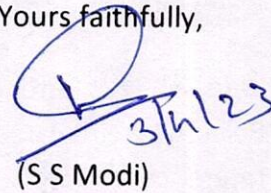 Yours faithfully,
(S S Modi)